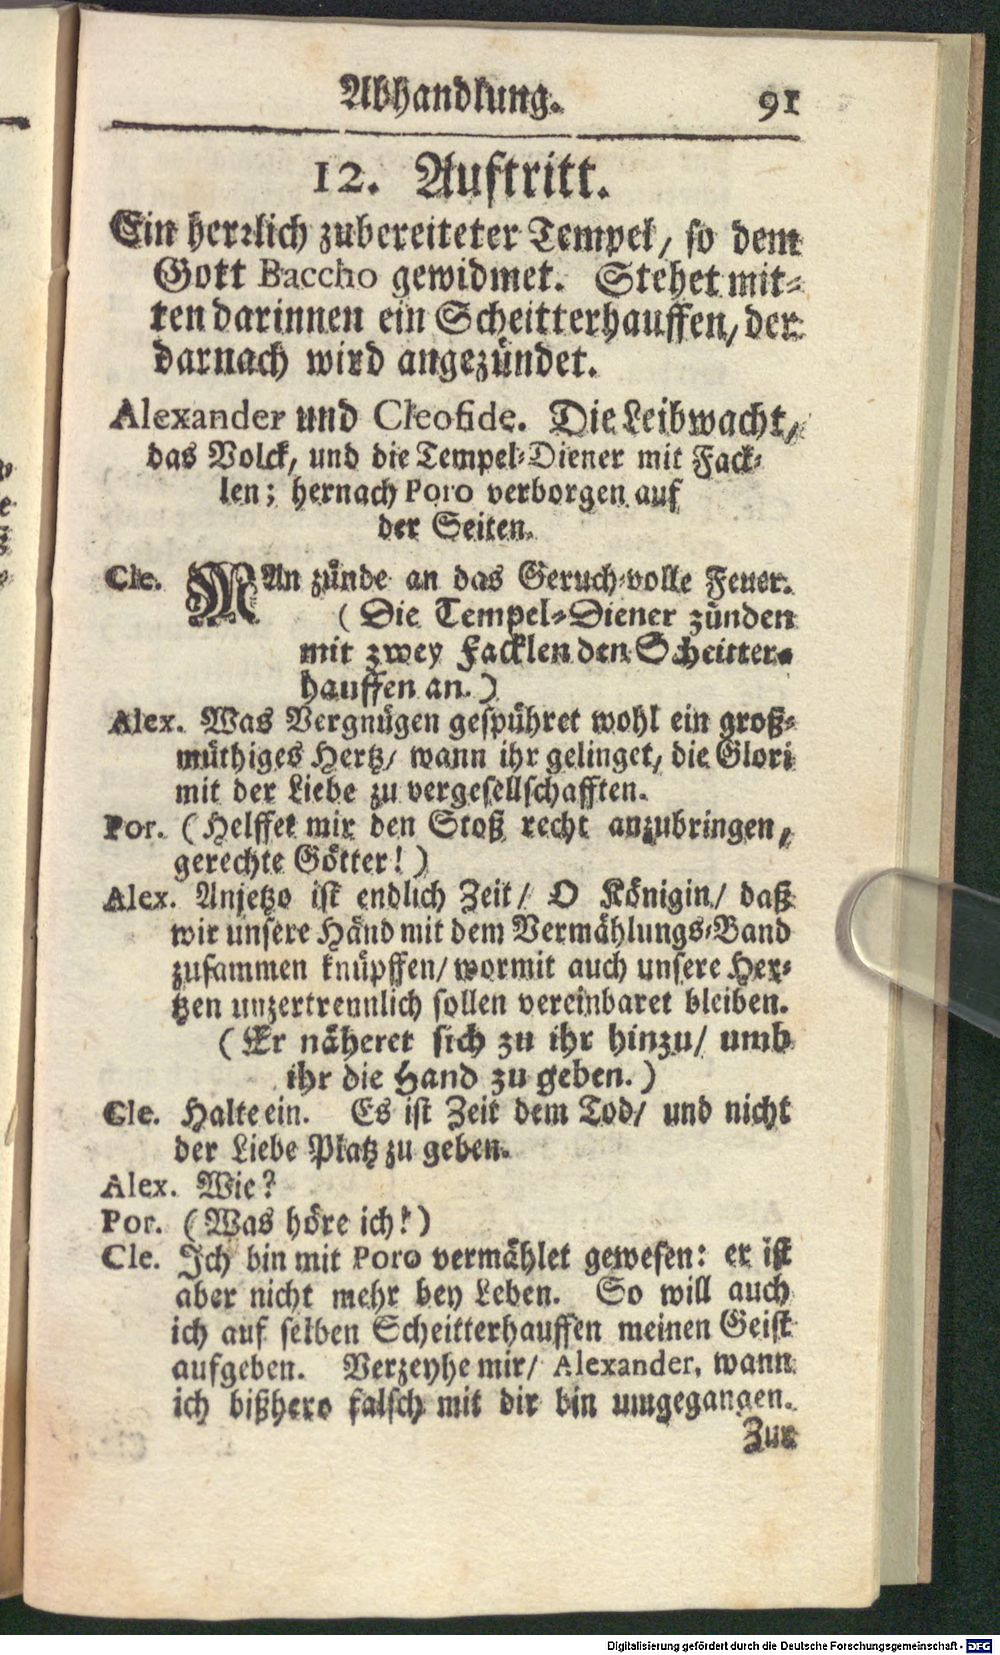 Abhandlung. 91
12. Auftritt.
Ein herrlich zubereiteter Tempel, so dem
Gott Baccho gewidmet. Stehet mit-
ten darinnen ein Scheitterhauffen, der
darnach wird angezündet.
Alexander und Cleofide. Die Leibwacht,
das Volck, und die Tempel-Diener mit Fack-
len; hernach Poro verborgen auf
der Seiten.
Cle. MAn zünde an das Geruch-volle Feuer.
(Die Tempel-Diener zünden
mit zwey Facklen den Scheitter-
hauffen an.)
Alex. Was Vergnügen gespühret wohl ein groß-
müthiges Hertz/ wann ihr gelinget, die Glori
mit der Liebe zu vergesellschafften.
Por. (Helffet mir den Stoß recht anzubringen,
gerechte Götter!)
Alex. Anjetzo ist endlich Zeit/ O Königin/ daß
wir unsere Händ mit dem Vermählungs-Band
zusammen knüpffen/ wormit auch unsere Her-
tzen unzertrennlich sollen vereinbaret bleiben.
(Er näheret sich zu ihr hinzu/ umb
ihr die Hand zu geben.)
Cle. Halte ein. Es ist Zeit dem Tod/ und nicht
der Liebe Platz zu geben.
Alex. Wie?
Por. (Was höre ich!)
Cle. Ich bin mit Poro vermählet gewesen: er ist
aber nicht mehr bey Leben. So will auch
ich auf selben Scheitterhauffen meinen Geist
aufgeben. Verzeyhe mir/ Alexander, wann
ich bißhero falsch mit dir bin umgegangen.
Zur
Digitalisierung gefördert durch die Deutsche Forschungsgemeinschaft - DFG